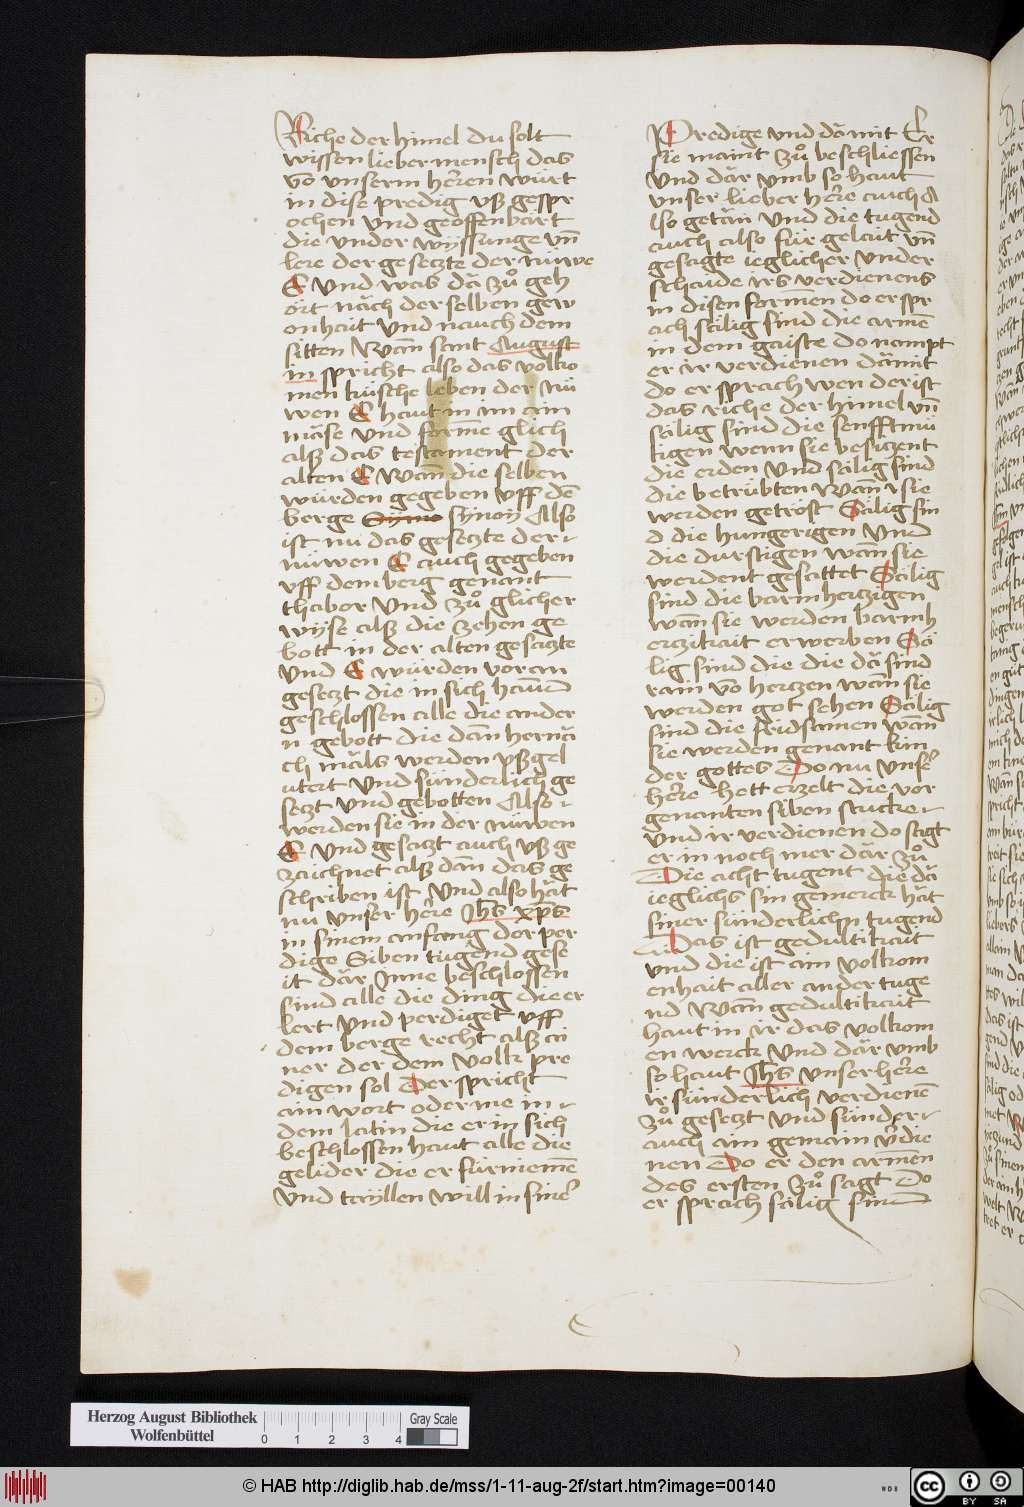 Riche der himel du solt
wissen lieber mensch das
vō unserm heren würt
in dise predig usz gespr
ochen und geoffenbart
die under wyssunge uñ
lere der gesetzte der nüwe
E und was dā zů geh
ört nāch der selben gew
onhait und nauch dem
sitten Wañ sant August
in spricht also das volko
men küsche leben der nü
wen E haut in im ain
māse und forme glich
alsz das testament der
alten E Wañ die selben
würden gegeben uff dē
berge synoÿ Also
ist nu das gesetzte der
nüwen E auch gegeben
uff dem berg genant
thabor Und zů glicher
wyse alsz die zehen ge
bott in der alten gesatzte
und E würden voran
gesetzt die in sich hand
geschlossen alle die ander
n gebott die dan hernā
ch māls werden uszgel
utert und sünderlich ge
setzt und gebotten Also
werden sie in der nüwen
E und gesatzt auch usz ge
zaichnet alsz dañ das ge
schriben ist Und also hāt
nu unser here Jhs xps
in sinem anfang der per
dige Siben tugend gese
it dār Inne beschlossen
sind alle die ding die er
lert Und perdiget uff
dem berge recht alsz ai
ner der dem Volk pre
digen sol Der spricht
ain wort oder me in
dem latin die er in sich
beschlossen haut alle die
gelider die er fürniemē
und tayllen will in siner
Predige und dā mit Er
sie maint zů beschliessen
Und dār umb so haut
unser lieber here auch A
lso getān Und die tugend
auch also für gelait uñ
gesagte ieglicher under
schaide irs verdienens
in disen formen do er spr
ach sālig sind die armē
in dem gaiste do nampt
er ir verdienen dāmit
do er sprach wen der ist
das riche der himel uñ
sālig sind die senfftmü
tigen wenn sie besitzent
die erden Und sālig sind
die betrübten Wañ sie
werden getröst Sālig sin
d die hungerigen Und
die durstigen wañ sie
werdent gesattet Sālig
sind die barmhatzigen
wañ sie werden barmh
erzikait erwerben Sā
lig sind die die dā sind
rain vō hertzen wañ sie
werden got sehen Sālig
sind die fridsamen wañ
sie werden genant kin
der gottes Do nu unser
here hett erzelt die vor
genanten siben stucke
und ir verdienen do sagt
er in noch mer dār zů
Die acht tugent die dā
ieglichs sin gemerck hāt
siner sünderlichn tugend
Das ist gedultikait
und die ist ain volkom
enhait aller ander tuge
nd Wañ gedultikait
haut in ir das volkom
en werck Und dār umb
so haut Jhs unser here
ir sünderlich verdienē
zů gesetzt Und sünder
auch ain gemain v̄die
nen Do er den armēn
des ersten zů sagt Do
er sprach sālig sind
Herzog August Bibliothek
Wolfenbüttel
0 1 2 3 4
Gray Scale
© HAB http://diglib.hab.de/mss/1-11-aug-2f/start.htm?image=00140
cc BY SA